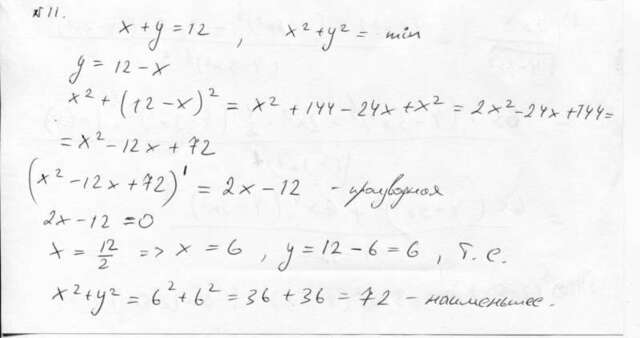 № 11.
x + y = 12 , x² + y² = min
y = 12 - x
x² + (12 - x)² = x² + 144 - 24x + x² = 2x² - 24x + 144 =
= x² - 12x + 72
(x² - 12x + 72)' = 2x - 12 - производная
2x - 12 = 0
x = 12/2 => x = 6 , y = 12 - 6 = 6 , т.е.
x² + y² = 6² + 6² = 36 + 36 = 72 - наименьшее.